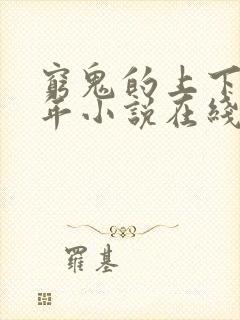 窮鬼的上下
年小說在綫
羅基